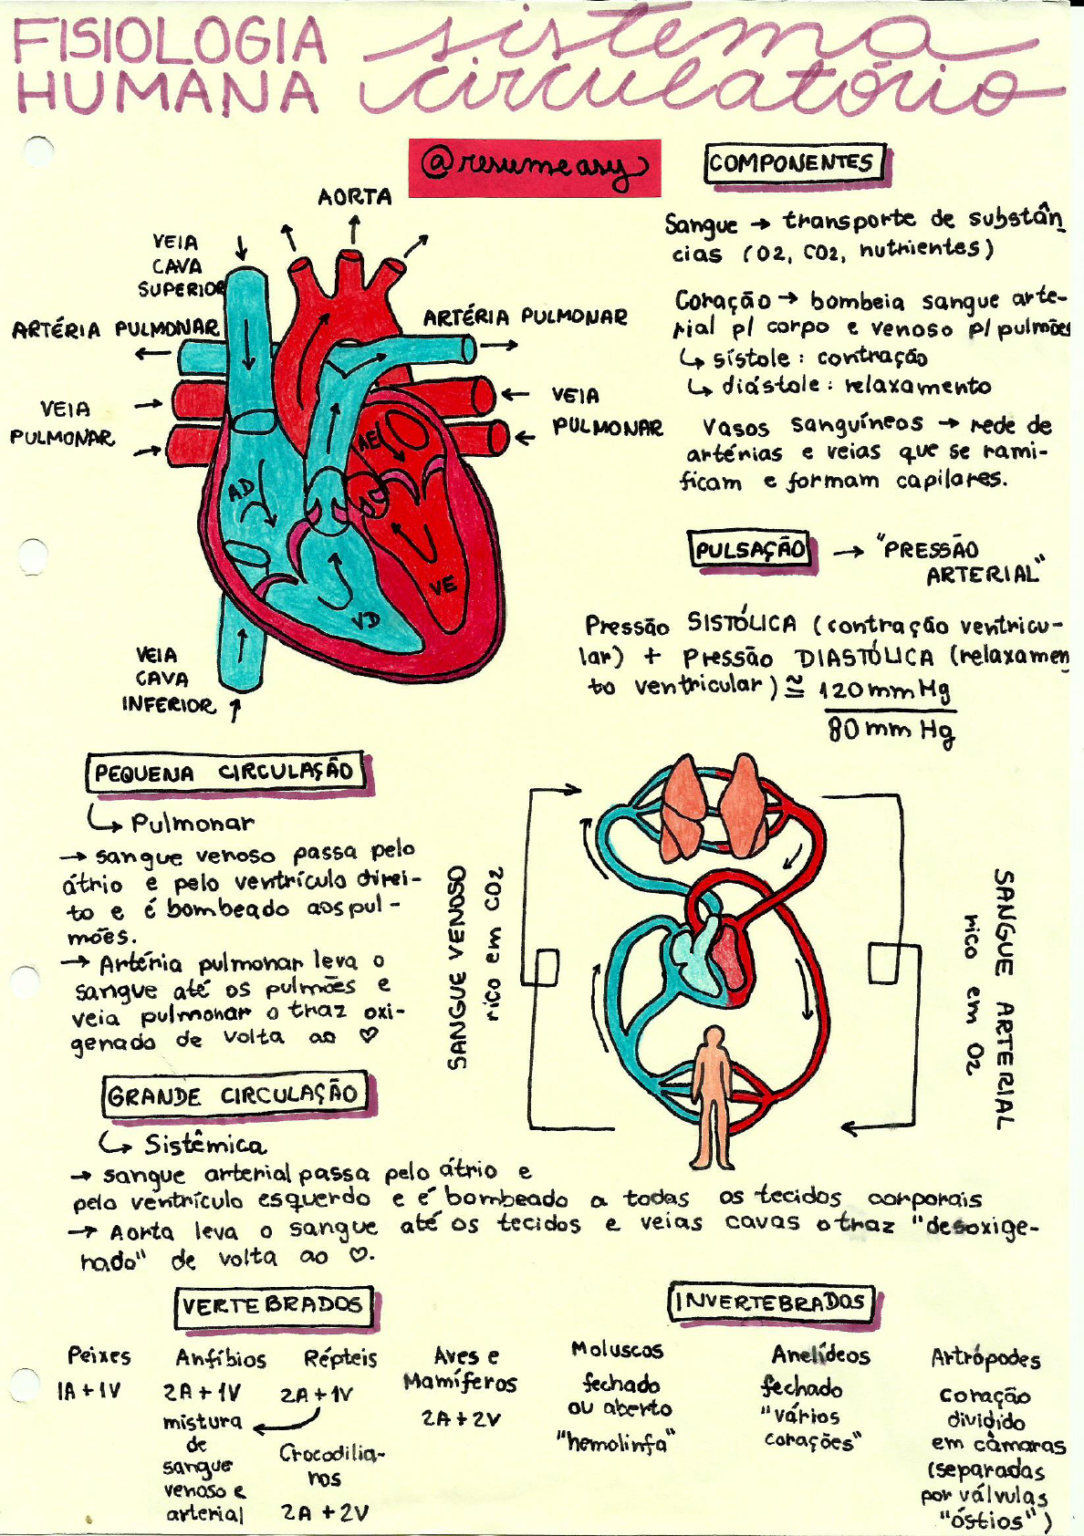 FISIOLOGIA
HUMANA
sistema
circulatório
@resumeasy
AORTA
VEIA
CAVA
SUPERIOR
ARTÉRIA PULMONAR
ARTÉRIA PULMONAR
VEIA
PULMONAR
VEIA
PULMONAR
AE
AD
VE
VD
VEIA
CAVA
INFERIOR
COMPONENTES
Sangue → transporte de substân
cias (O2, CO2, nutrientes)
Coração → bombeia sangue arte-
rial p/ corpo e venoso p/ pulmões
↳ sístole: contração
↳ diástole: relaxamento
Vasos sanguíneos → rede de
artérias e veias que se rami-
ficam e formam capilares.
PULSAÇÃO → "PRESSÃO
ARTERIAL"
Pressão SISTÓLICA (contração ventricu-
lar) + Pressão DIASTÓLICA (relaxamen
to ventricular) ≅ 120 mmHg
80 mm Hg
PEQUENA CIRCULAÇÃO
↳ Pulmonar
→ sangue venoso passa pelo
átrio e pelo ventrículo direi-
to e é bombeado aos pul-
mões.
→ Artéria pulmonar leva o
sangue até os pulmões e
veia pulmonar o traz oxi-
genado de volta ao ♡
SANGUE VENOSO
rico em CO2
SANGUE ARTERIAL
rico em O2
GRANDE CIRCULAÇÃO
↳ Sistêmica
→ sangue arterial passa pelo átrio e
pelo ventrículo esquerdo e é bombeado a todas os tecidos corporais
→ Aorta leva o sangue até os tecidos e veias cavas o traz "desoxige-
nado" de volta ao ♡.
VERTEBRADOS
Peixes
1A + 1V
Anfíbios
2A + 1V
mistura
de
sangue
venoso e
arterial
Répteis
2A + 1V
Crocodilia-
nos
2A + 2V
Aves e
Mamíferos
2A + 2V
INVERTEBRADOS
Moluscos
fechado
ou aberto
"hemolinfa"
Anelídeos
fechado
"vários
corações"
Artrópodes
coração
dividido
em câmaras
(separadas
por válvulas
"óstios")